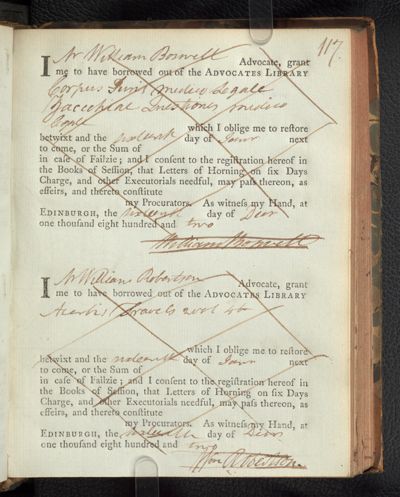 117.
I Mr William Boswell Advocate, grant
me to have borrowed out of the ADVOCATES LIBRARY
Corpus Juris medico Legale
Zacchiae Questiones medico
Legale
which I oblige me to reſtore
betwixt and the sixteenth day of Janr next
to come, or the Sum of
in caſe of Failzie; and I conſent to the regiſtration hereof in
the Books of Seſſion, that Letters of Horning on ſix Days
Charge, and other Executorials needful, may paſs thereon, as
effeirs, and thereto conſtitute
my Procurators. As witneſs my Hand, at
EDINBURGH, the sixteenth day of Decr
one thouſand eight hundred and two
William Boswell
I Mr William Robertson Advocate, grant
me to have borrowed out of the ADVOCATES LIBRARY
Travels 2 vol 4to
which I oblige me to reſtore
betwixt and the day of Janr next
to come, or the Sum of
in caſe of Failzie; and I conſent to the regiſtration hereof in
the Books of Seſſion, that Letters of Horning on ſix Days
Charge, and other Executorials needful, may paſs thereon, as
effeirs, and thereto conſtitute
my Procurators. As witneſs my Hand, at
EDINBURGH, the sixteenth day of Decr
one thouſand eight hundred and two
Wm Robertson